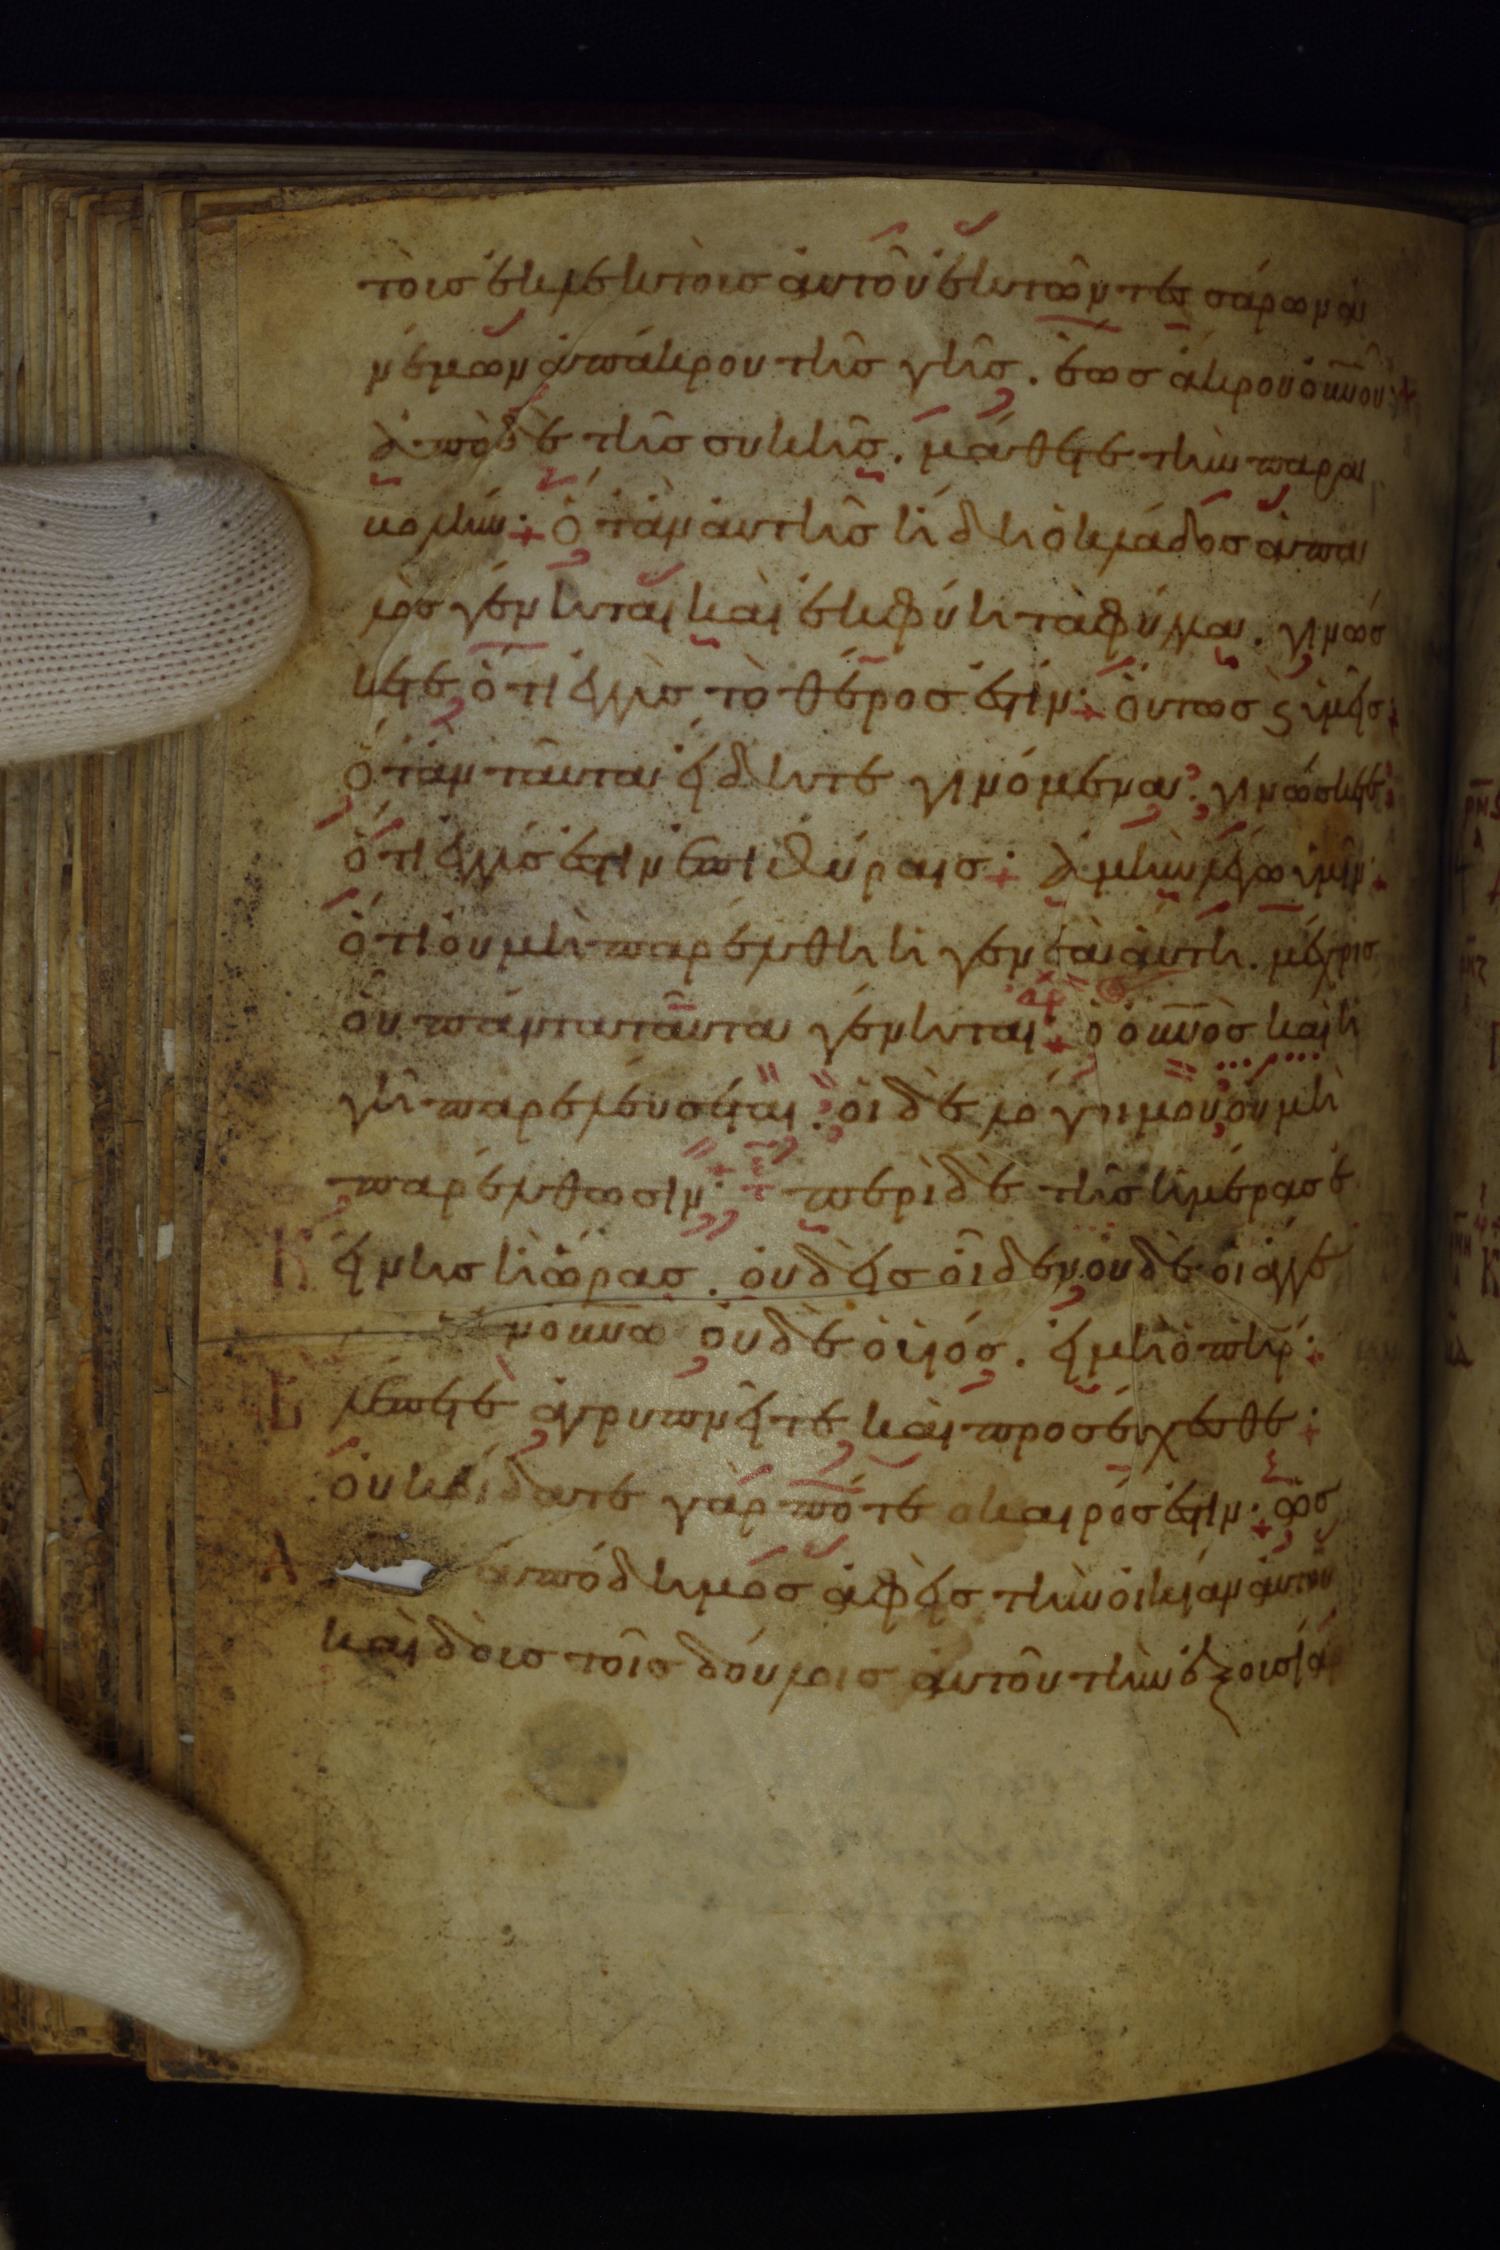 τοὺσ ἐκλεκτοὺσ ἀυτοῦ ἐκ τῶν τεσσάρων ἀ
νέμων ἀπάκρου τῆσ γῆσ. ἕωσ ἄκρου ὀυνοῦ:
ἀπὸ δὲ τῆσ συκῆσ. μάθετε τὴν παρα
βολήν: ὅταν ἀυτῆσ ἤδη ὁ κλάδοσ ἁπα
λὸσ γένηται καὶ ἐκφύη τὰ φύλλα. γινώσ
κετε ὅτι ἐγγὺσ τὸ θέροσ ἐστίν: ὅυτωσ ϗ ὑμεῖσ:
ὅταν ταῦτα ἴδητε γινόμενα. γινώσκετε
ὅτι ἐγγύσ ἐστιν ἐπι θύραισ: ἀμὴν λέγω ὑμῖν:
ὅτι ὀυ μὴ παρέλθη ἡ γενεὰ ἀυτη. μέχρισ
ὁυ πάντα ταῦτα γένηται: ὁ ὀυνὸσ καὶ ἡ
γῆ παρελέυσεται: ὁι δὲ λόγοι μου ὀυ μὴ
παρέλθωσιν: περὶ δὲ τῆσ ἡμέρασ ἐ
κείνησ ἢ ὥρασ. ὀυδεὶσ ὀῖδεν ὀυδὲ ὁι ἄγγε
ν ὀυνω ὀυδὲ ὁ υἱόσ. εἰ μὴ ὁ πηρ:
βλέπετε ἀγρυπνεῖτε καὶ προσέυχεσθε:
ὀυκ ὀίδατε γὰρ πότε ὁ καιρόσ ἐστιν: ὡσ
ἀπόδημοσ ἀφεὶσ τὴν ὀικίαν ἀυτοῦ
καὶ δοὺσ τοῖσ δούλοισ ἀυτοῦ τὴν ἐξουσίαν